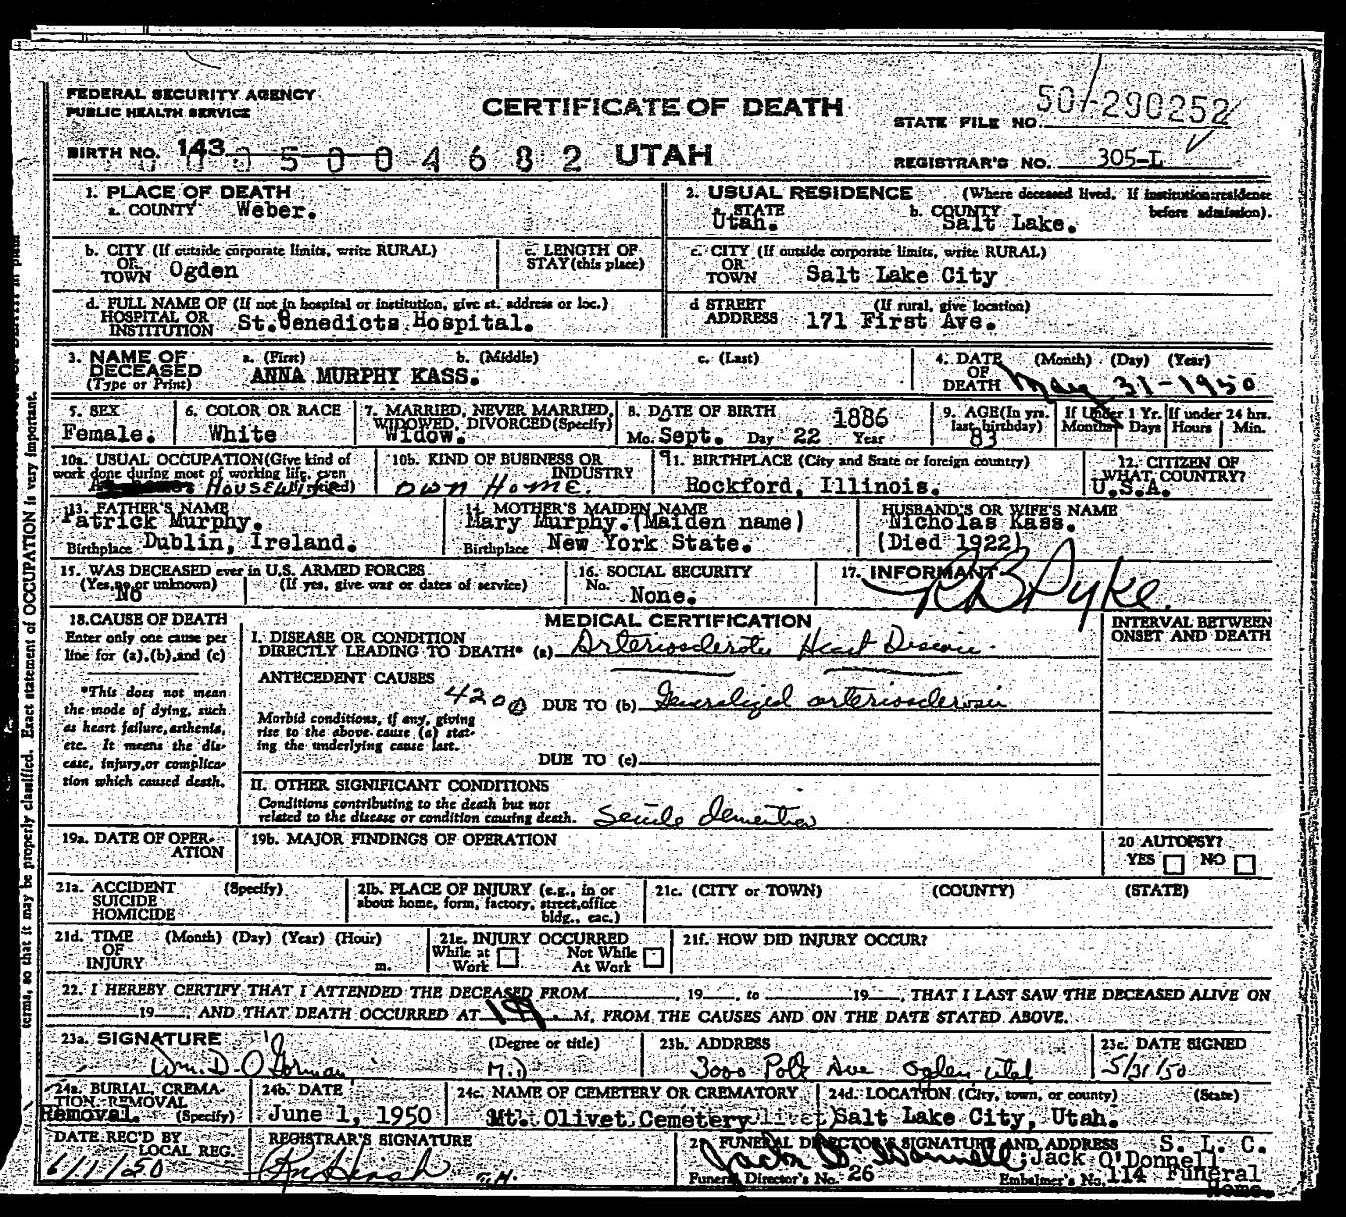 FEDERAL SECURITY AGENCY
PUBLIC HEALTH SERVICE
CERTIFICATE OF DEATH
STATE FILE NO. 50-290252
BIRTH NO. 143 0 0 5 0 0 4 6 8 2 UTAH
REGISTRAR'S NO. 305-L
1. PLACE OF DEATH
a. COUNTY Weber.
2. USUAL RESIDENCE (Where deceased lived. If institution:residence before admission).
a. STATE Utah. b. COUNTY Salt Lake.
b. CITY (If outside corporate limits, write RURAL) OR TOWN Ogden
c. LENGTH OF STAY (this place)
c. CITY (If outside corporate limits, write RURAL) OR TOWN Salt Lake City
d. FULL NAME OF (If not in hospital or institution, give st. address or loc.) HOSPITAL OR INSTITUTION St.Benedicts Hospital.
d STREET ADDRESS (If rural, give location) 171 First Ave.
3. NAME OF DECEASED (Type or Print) a. (First) b. (Middle) c. (Last)
ANNA MURPHY KASS.
4. DATE OF DEATH (Month) (Day) (Year) May 31-1950
5. SEX Female.
6. COLOR OR RACE White
7. MARRIED, NEVER MARRIED, WIDOWED, DIVORCED(Specify) Widow.
8. DATE OF BIRTH Mo. Sept. Day 22 1886 Year
9. AGE(In yrs. last birthday) 83
If Under 1 Yr. Months Days
If under 24 hrs. Hours Min.
10a. USUAL OCCUPATION(Give kind of work done during most of working life, even if retired) HOUSEWIFE
10b. KIND OF BUSINESS OR INDUSTRY OWN HOME.
11. BIRTHPLACE (City and State or foreign country) Rockford, Illinois.
12. CITIZEN OF WHAT COUNTRY? U.S.A.
13. FATHER'S NAME Patrick Murphy.
Birthplace Dublin, Ireland.
14. MOTHER'S MAIDEN NAME Mary Murphy.(Maiden name)
Birthplace New York State.
HUSBAND'S OR WIFE'S NAME Nicholas Kass.
(Died 1922)
15. WAS DECEASED ever in U.S. ARMED FORCES
(Yes,no,or unknown) (If yes, give war or dates of service) No
16. SOCIAL SECURITY No. None.
17. INFORMANT K B Pyke.
18.CAUSE OF DEATH
Enter only one cause per
line for (a).(b),and (c)
*This does not mean
the mode of dying, such
as heart failure,asthenia,
etc. It means the dis-
ease, injury,or complica-
tion which caused death.
MEDICAL CERTIFICATION
INTERVAL BETWEEN ONSET AND DEATH
I. DISEASE OR CONDITION
DIRECTLY LEADING TO DEATH* (a) Arteriosclerotic Heart Disease.
ANTECEDENT CAUSES
4200 DUE TO (b) Generalized arteriosclerosis
Morbid conditions, if any, giving
rise to the above cause (a) stat-
ing the underlying cause last.
DUE TO (c)
II. OTHER SIGNIFICANT CONDITIONS
Conditions contributing to the death but not
related to the disease or condition causing death. Senile dementia
19a. DATE OF OPER-
ATION
19b. MAJOR FINDINGS OF OPERATION
20 AUTOPSY?
YES NO
21a. ACCIDENT (Specify)
SUICIDE
HOMICIDE
21b. PLACE OF INJURY (e.g., in or
about home, form, factory, street,office
bldg., eac.)
21c. (CITY or TOWN) (COUNTY) (STATE)
21d. TIME (Month) (Day) (Year) (Hour)
OF
INJURY m.
21e. INJURY OCCURRED
While at Work Not While At Work
21f. HOW DID INJURY OCCUR?
22. I HEREBY CERTIFY THAT I ATTENDED THE DECEASED FROM , 19 , to 19 , THAT I LAST SAW THE DECEASED ALIVE ON
19 , AND THAT DEATH OCCURRED AT M, FROM THE CAUSES AND ON THE DATE STATED ABOVE.
23a. SIGNATURE (Degree or title)
Wm. D. O'Gorman M.D
23b. ADDRESS
3000 Polk Ave Ogden Utah
23c. DATE SIGNED
5/31/50
24a. BURIAL, CREMA-
TION REMOVAL
Removal. (Specify)
24b. DATE
June 1, 1950
24c. NAME OF CEMETERY OR CREMATORY
Mt. Olivet Cemetery
24d. LOCATION (City, town, or county) (State)
Salt Lake City, Utah.
DATE REC'D BY
LOCAL REG.
6/1/50
REGISTRAR'S SIGNATURE
25 FUNERAL DIRECTOR'S SIGNATURE AND ADDRESS S. L. C.
Jack O'Donnell Jack O'Donnell
Funeral Director's No. 26 Embalmer's No. 114 Funeral
Home.
terms, so that it may be properly classified. Exact statement of OCCUPATION is very important.